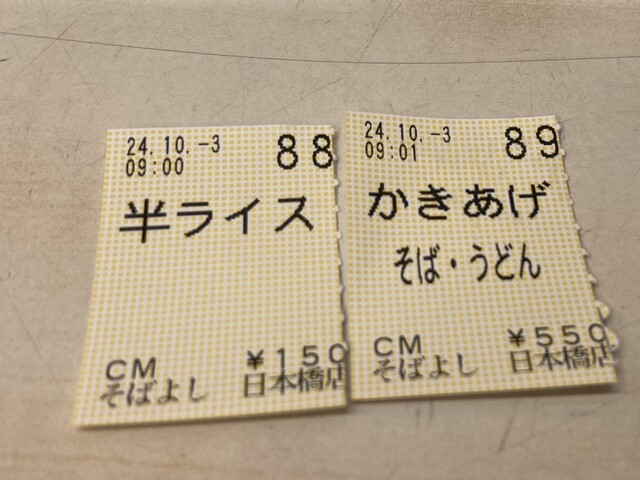 24.10.-3 88
09:00
半ライス
CM ¥150
そばよし 日本橋店
24.10.-3 89
09:01
かきあげ
そば・うどん
CM ¥550
そばよし 日本橋店